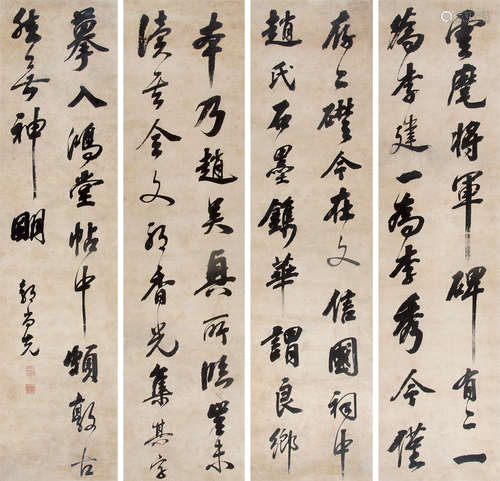 雲麾将軍碑有二一
為李建一為李秀今僅
存二礎今在文信國祠中
趙氏石墨鐫華謂良鄉
本乃趙吳興所臨望未
續其全文初香光集其字
摹入鴻堂帖中頗敦古
然無神明
郭尚先